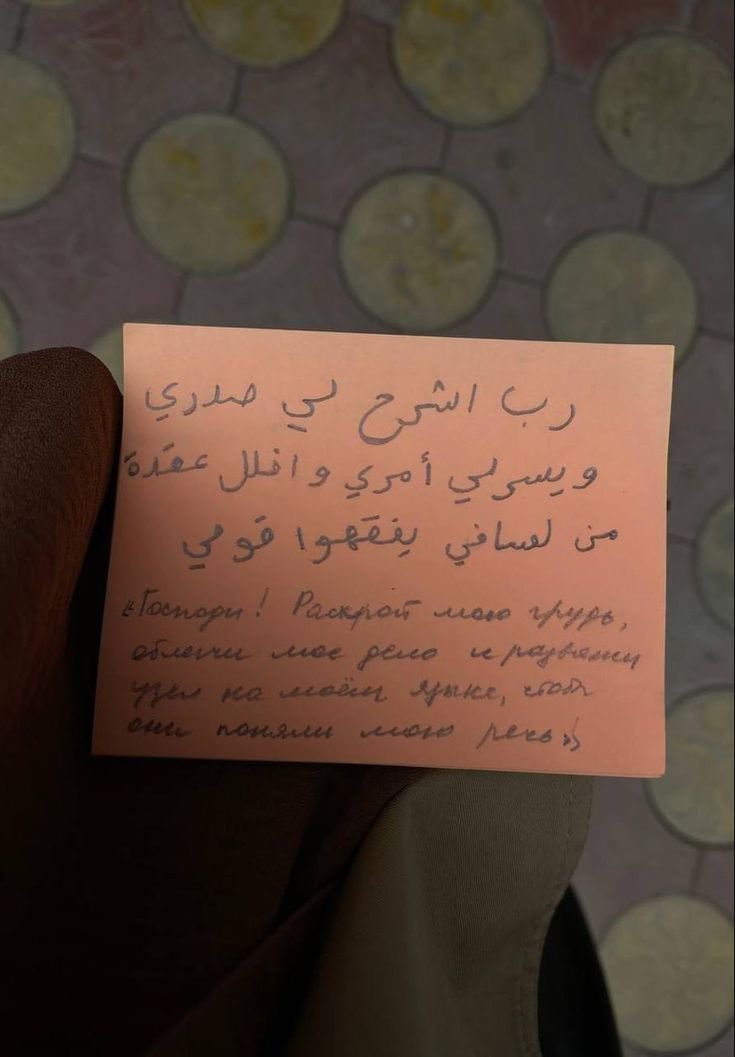 رب اشرح لي صدري
ويسرلي أمري واخلل عقدة
من لساني يفقهوا قومي
«Господи! Раскрой мою грудь,
облегчи мое дело и развяжи
узел на моём языке, чтобы
они поняли мою речь»